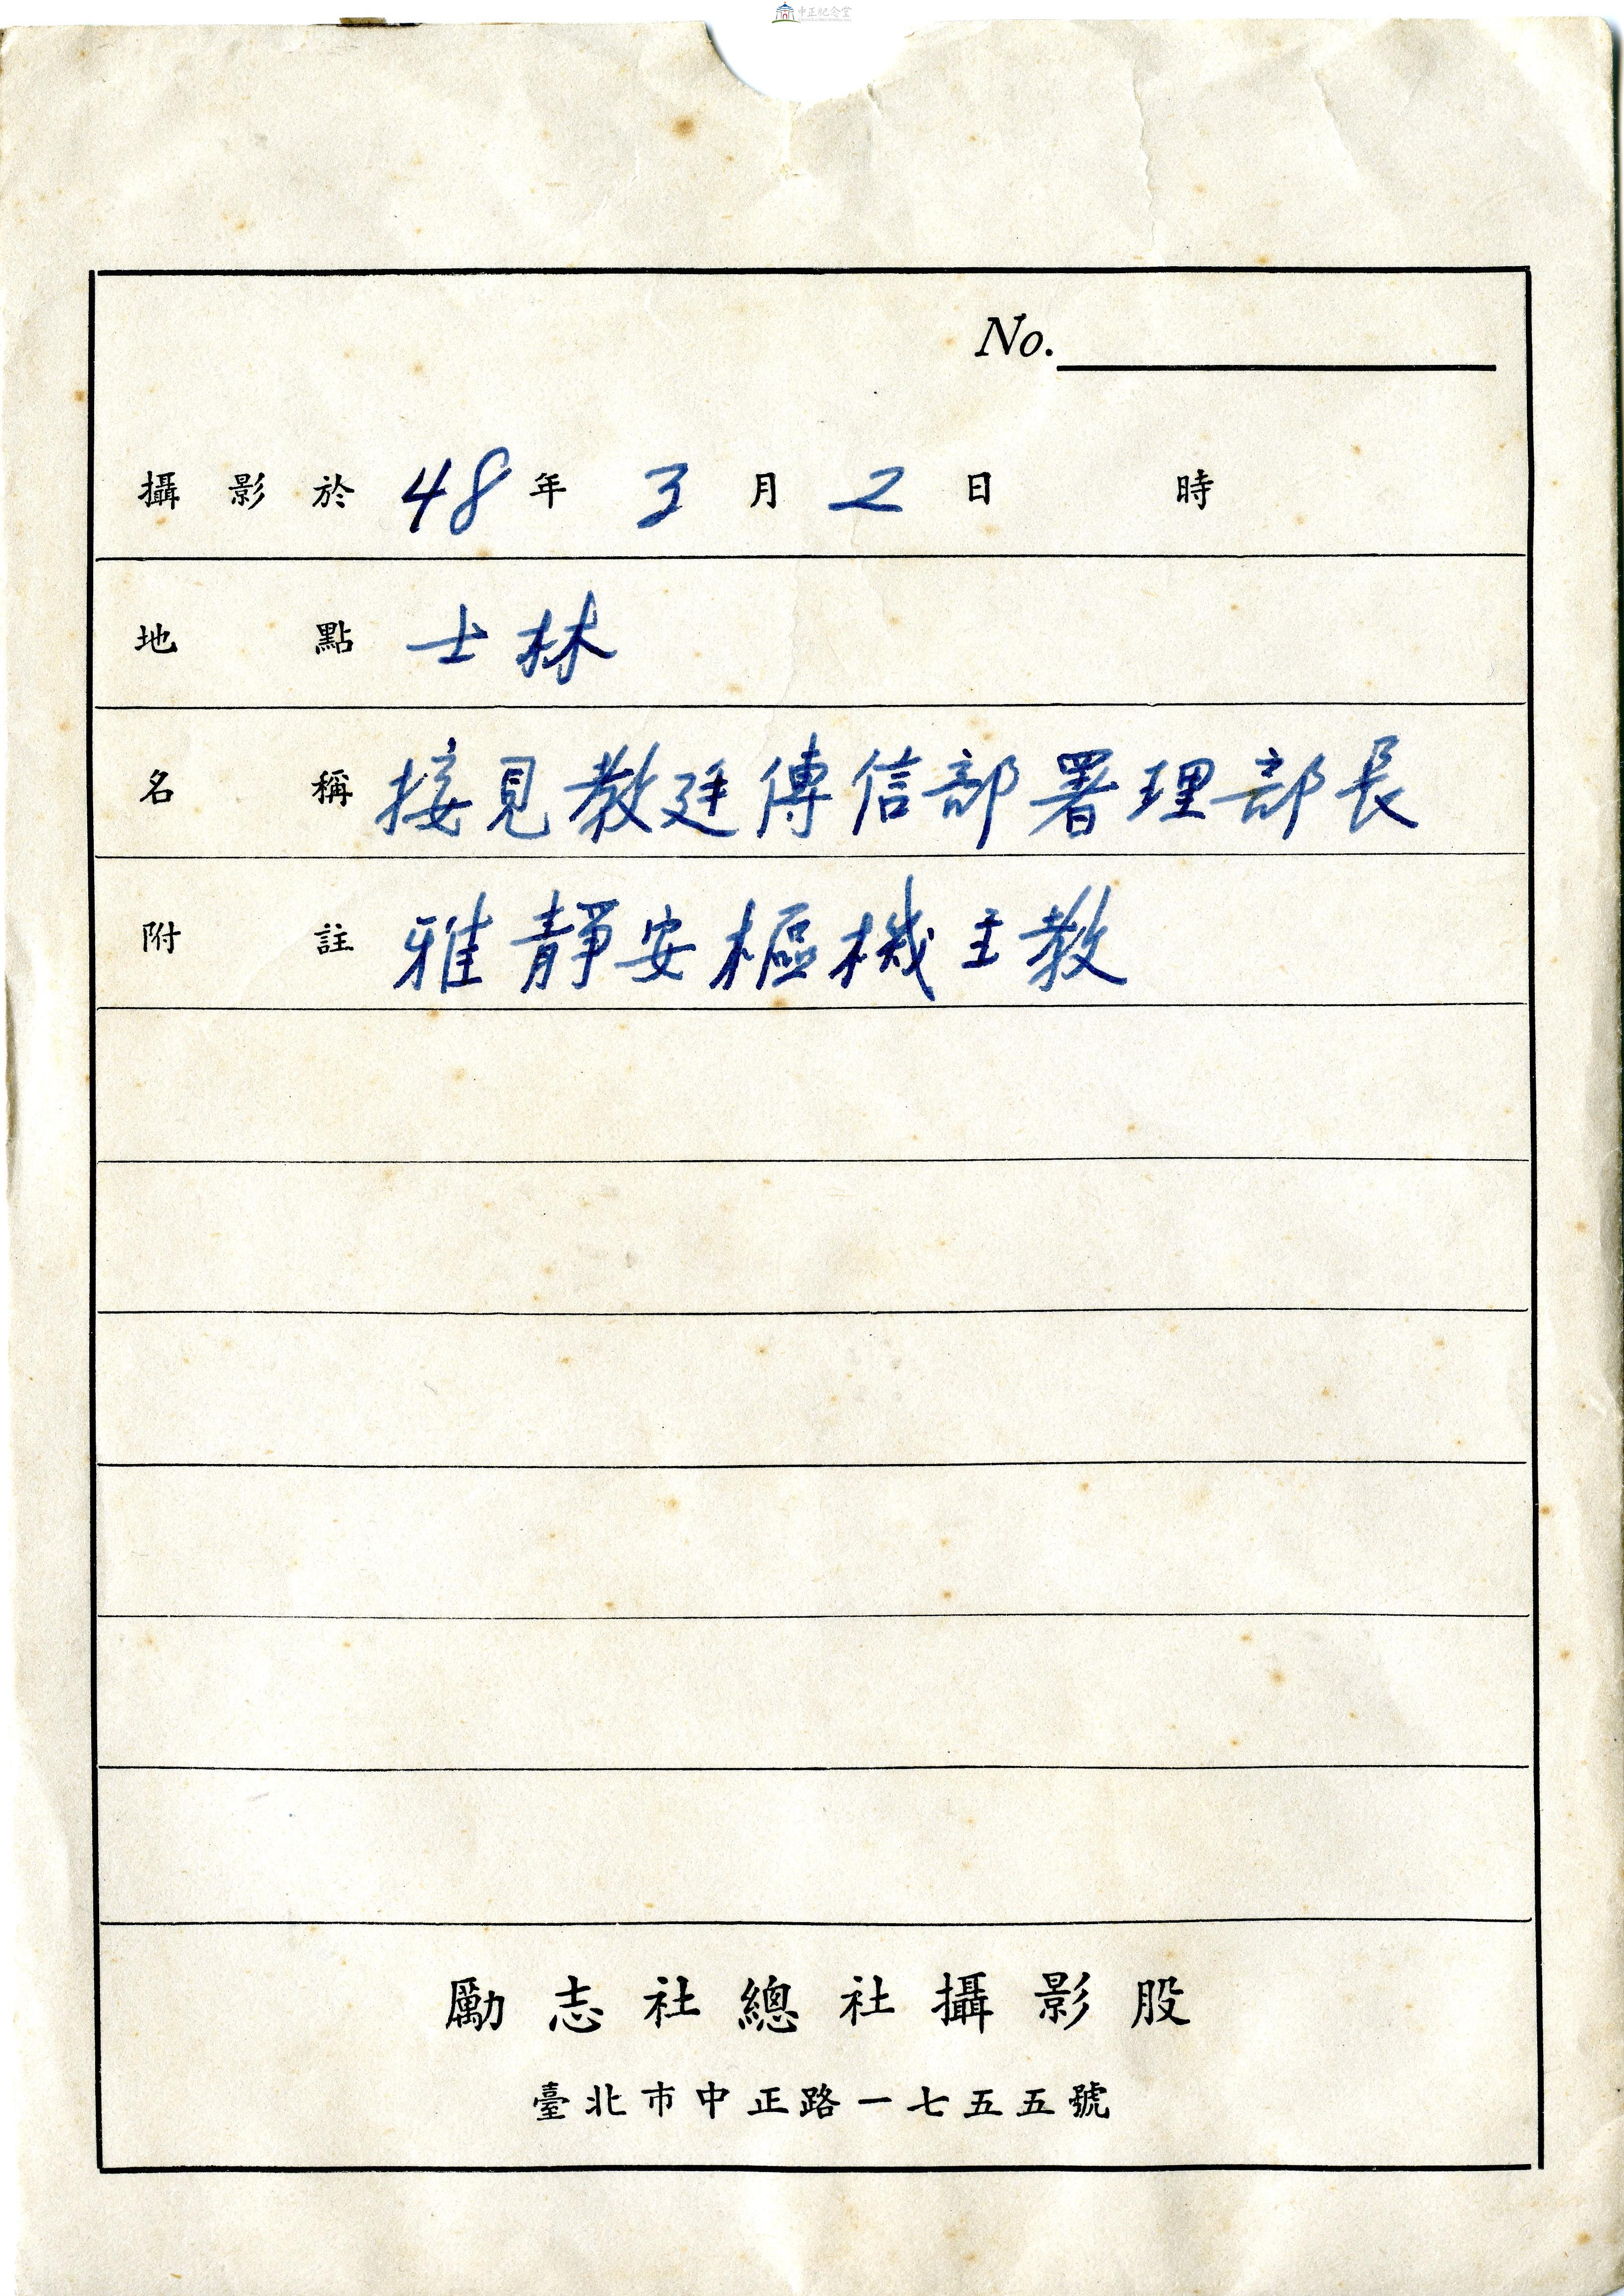 中正紀念堂
No.
攝影於 48 年 3 月 2 日 時
地點 士林
名稱 接見教廷傳信部署理部長
附註 雅靜安樞機主教
勵志社總社攝影股
臺北市中正路一七五五號